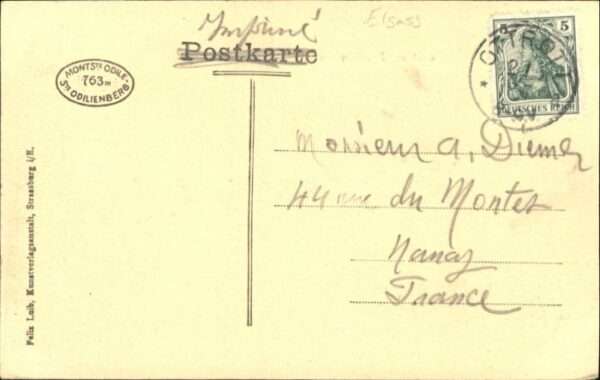 Imprimé
Elsass
Postkarte
MONT STE ODILE
763m
ST ODILIENBERG
5
DEUTSCHES REICH
OTTROTT
Monsieur A. Diemer
44 rue du Montet
Nancy
France
Felix Luib, Kunstverlagsanstalt, Strassburg i/E.